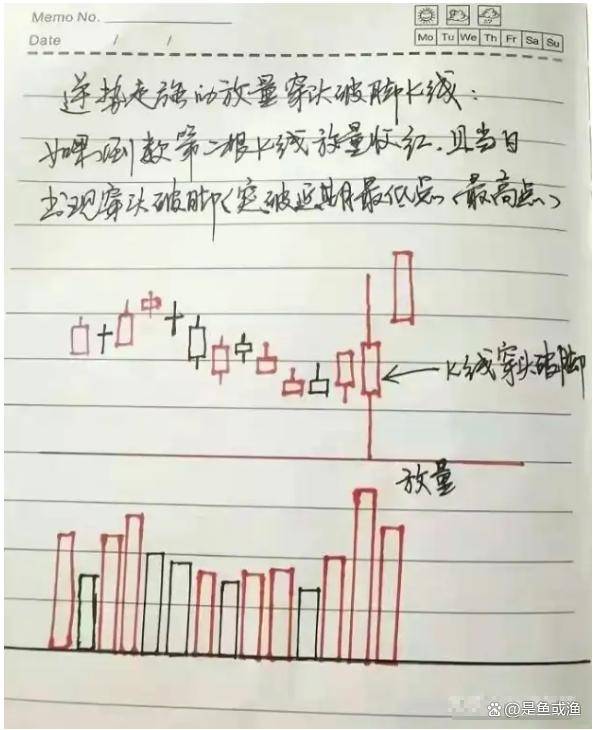 Memo No.
Date / /
Mo Tu We Th Fr Sa Su
逆势走强的放量穿头破脚K线:
如果倒数第二根K线放量收红,且当日
出现穿头破脚(突破近期最低点、最高点)
K线穿头破脚
放量
@是鱼或渔